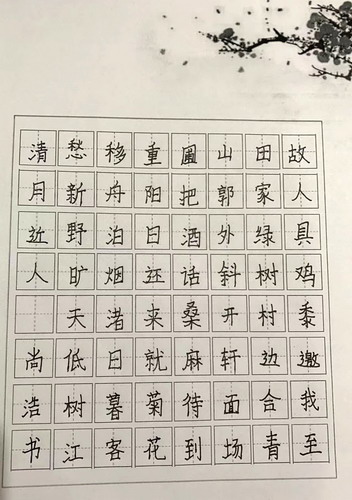 故人具鸡黍邀我至
田家绿树村边合青
山郭外斜开轩面场
圃把酒话桑麻待到
重阳日还来就菊花
移舟泊烟渚日暮客
愁新野旷天低树江
清月近人 尚浩书